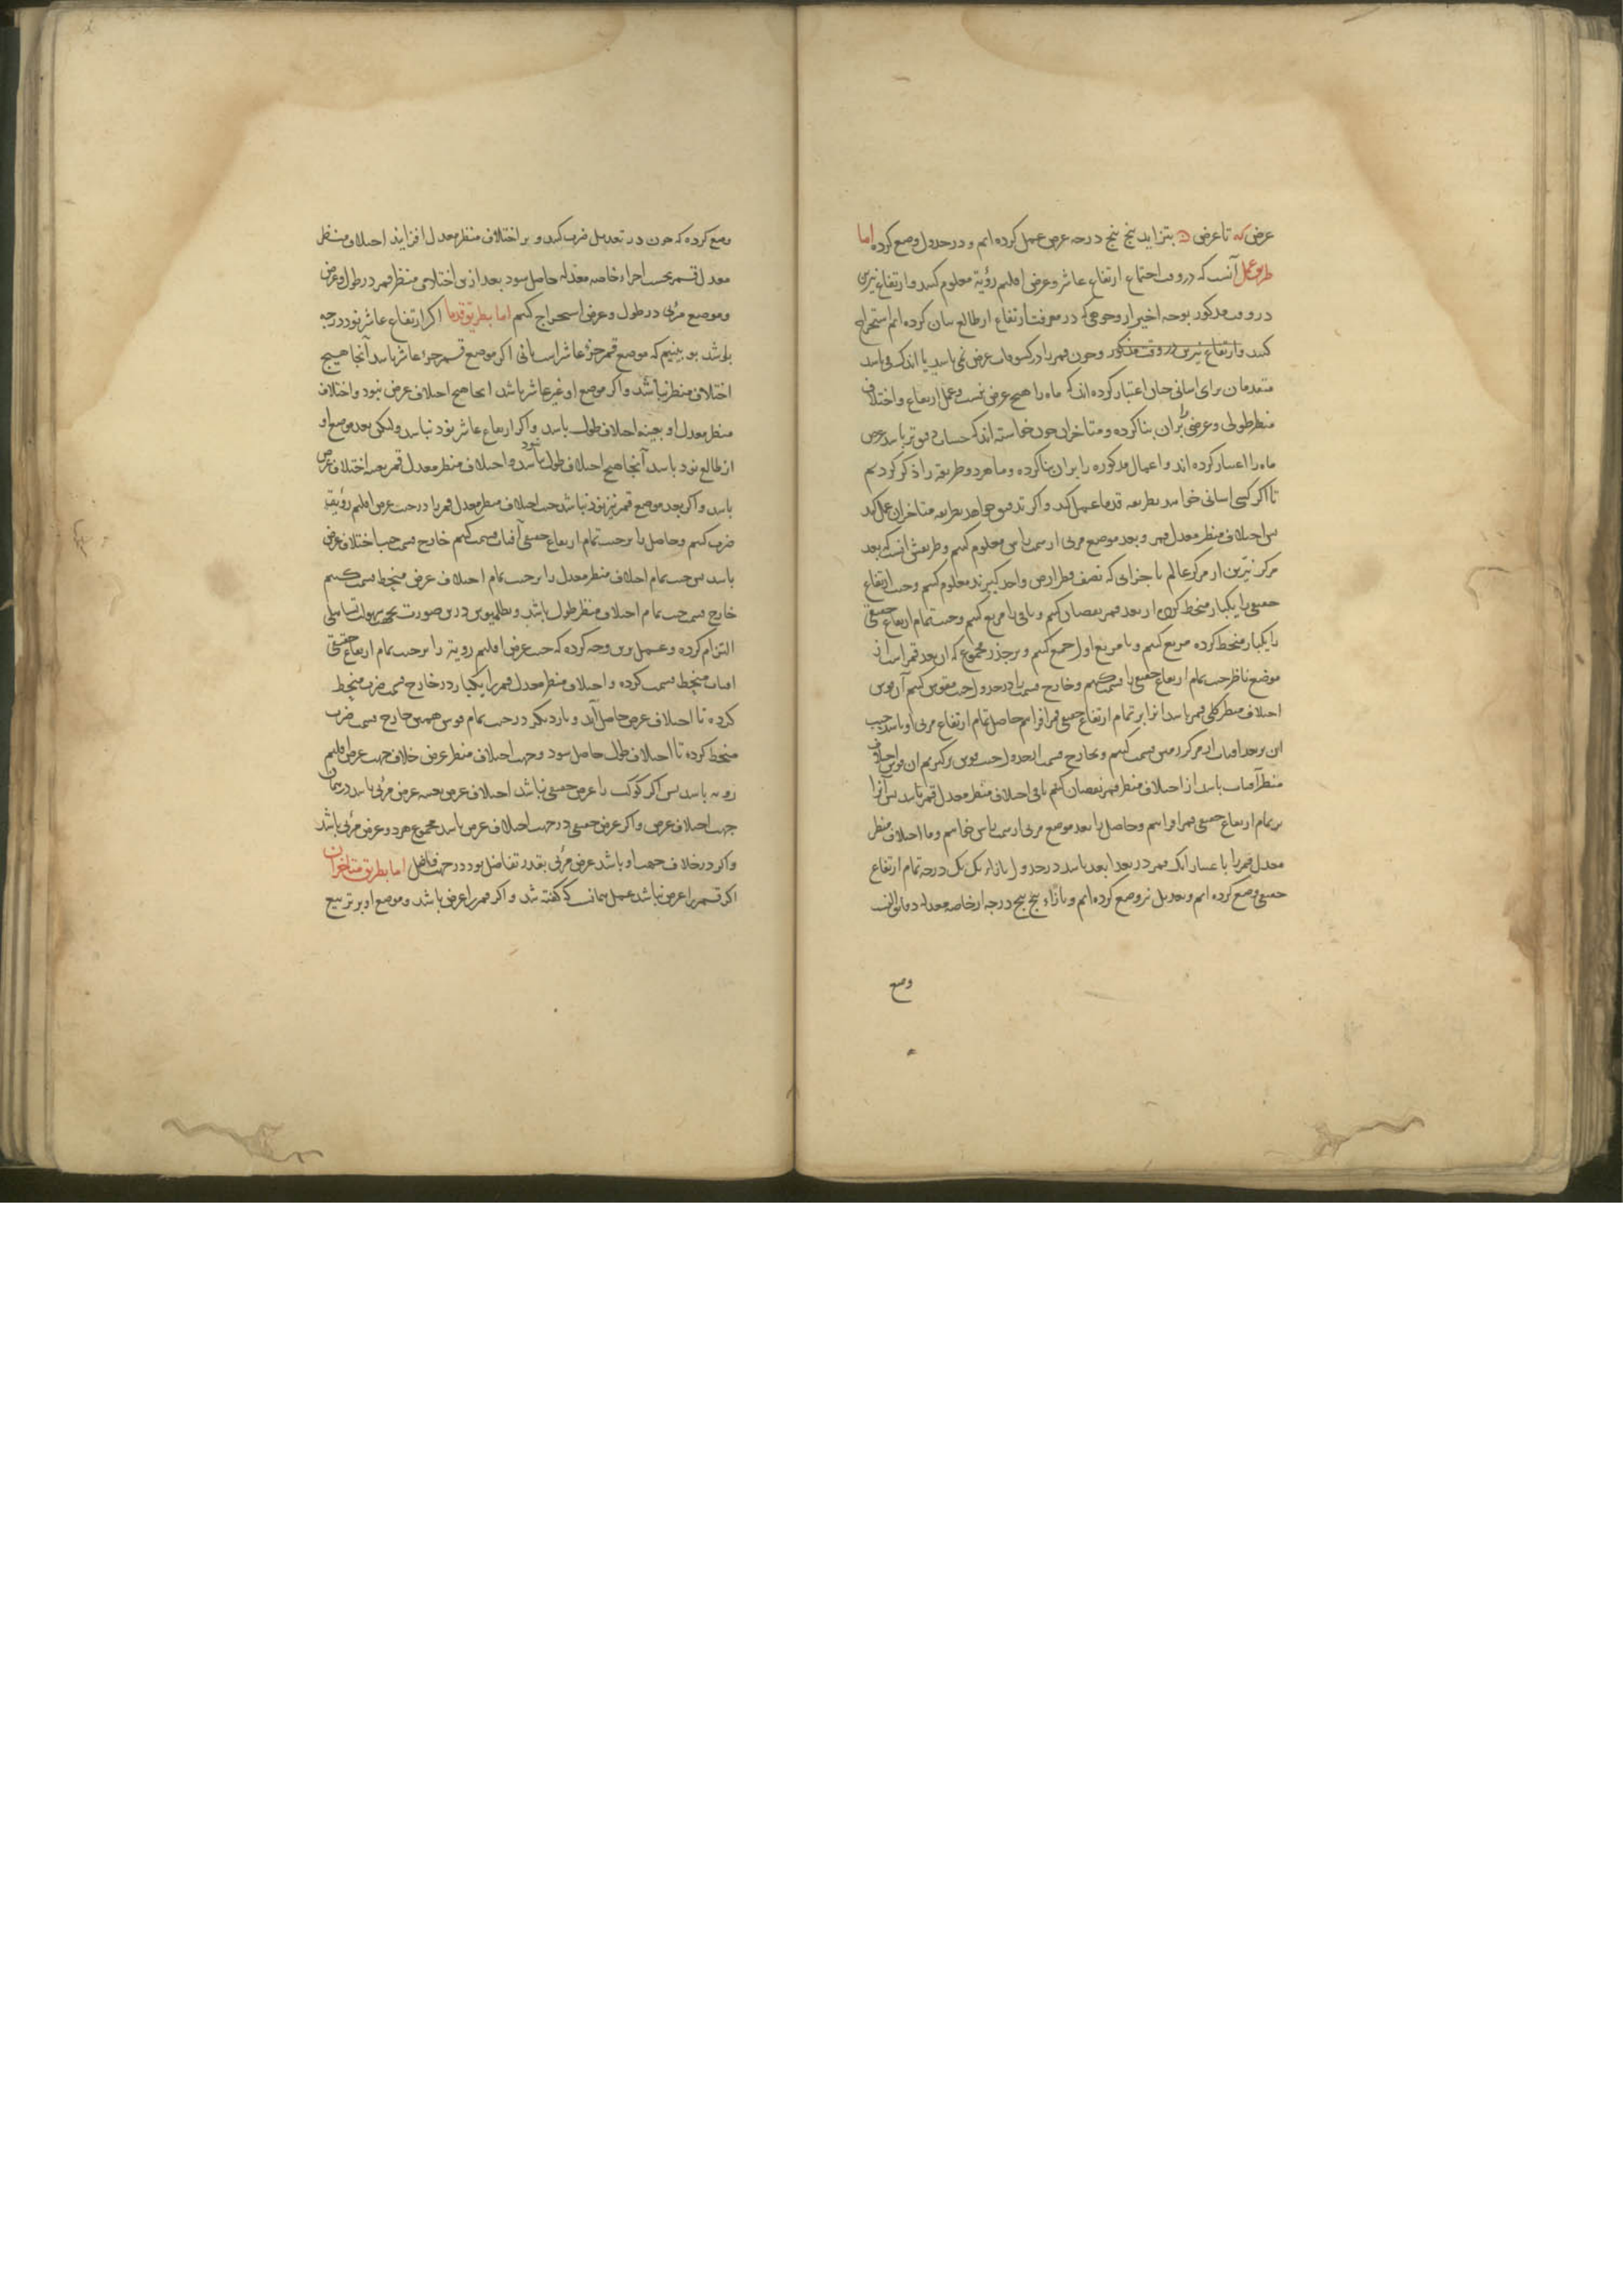 عرض که تا عرض ن بتزاید پنج پنج درجه عرض عمل کرده ایم و در جدول وضع کرده اما
طریق عمل آنست که در وقت اجتماع ارتفاع عاشر و عرض اقلیم رؤیة معلوم کنند و ارتفاع نیرین
در وقت مذکور بوجه اخیر از وجوهی که در معرفت ارتفاع از طالع بیان کرده ایم استخراج
کنند و ارتفاع نیرین در وقت مذکور و چون قمر را در کسوفات عرض نمی باشد یا اندک می باشد
متقدمان برای اسانی چنان اعتبار کرده اند که ماه را هیچ عرض نیست و عمل ارتفاع و اختلاف
منظر طولی و عرضی بران بنا کرده و متاخران چون خواسته اند که حساب دقیق تر باشد عرض
ماه را اعتبار کرده اند و اعمال مذکوره را بران بنا کرده و ما هر دو طریقه را ذکر کردیم
تا اگر کسی اسانی خواهد بطریقه قدما عمل کند و اگر تدقیق خواهد بطریقه متاخران عمل کند
پس اختلاف منظر معدل قمر و بعد موضع مرئی از سمت راس معلوم کنیم و طریقش انست که بعد
مرکز نیرین از مرکز عالم باجزائی که نصف قطر ارض واحد گیرند معلوم کنیم و جیب ارتفاع
حقیقی را یکبار منحط کرده از بعد قمر نقصان کنیم و باقی را مربع کنیم و جیب تمام ارتفاع حقیقی
را یکبار منحط کرده مربع کنیم و با مربع اول جمع کنیم و بر جذر مجموع که ان بعد قمر است از
موضع ناظر جیب تمام ارتفاع حقیقی را قسمت کنیم و خارج قسمت را در جدول جیب مقوس کنیم آن قوس
اختلاف منظر کلی قمر باشد انرا بر تمام ارتفاع حقیقی قمر افزاییم حاصل تمام ارتفاع مرئی او باشد جیب
این بر بعد افتاب از مرکز زمین قسمت کنیم و بخارج قسمت از جدول جیب قوس برگیریم ان قوس اختلاف
منظر آفتاب باشد از اختلاف منظر قمر نقصان کنیم باقی اختلاف منظر معدل قمر باشد پس آنرا
بر تمام ارتفاع حقیقی قمر افزاییم و حاصل را بعد موضع مرئی از سمت راس خوانیم و ما اختلاف منظر
معدل قمر را باعتبار انک قمر در بعد ابعد باشد در جدول بازاء یک یک درجه تمام ارتفاع
حقیقی وضع کرده ایم و تعدیل نیز وضع کرده ایم و بازاء پنج پنج درجه از خاصه معدله دقائق النسب
وضع
وضع کرده که چون در تعدیل ضرب کنند و بر اختلاف منظر معدل افزایند اختلاف منظر
معدل قمر بحسب اجزاء خاصه معدله حاصل شود بعد ازین اختلاف منظر قمر در طول و عرض
و موضع مرئی در طول و عرض استخراج کنیم اما بطریق قدما اگر ارتفاع عاشر نود درجه
باشد بو بینیم که موضع قمر جزؤ عاشر است یانی اگر موضع قمر جزؤ عاشر باشد آنجا هیچ
اختلاف منظر نباشد و اگر موضع او غیر عاشر باشد انجا هیچ اختلاف عرض نبود و اختلاف
منظر معدل او بعینه اختلاف طول باشد و اگر ارتفاع عاشر نود نباشد ولیکن بعد موضع او
از طالع نود باشد آنجا هیچ اختلاف طول نباشد و اختلاف منظر معدل قمر بعینه اختلاف عرض
باشد و اگر بعد موضع قمر نیز نود نباشد جیب اختلاف منظر معدل قمر را در جیب عرض اقلیم رؤیة
ضرب کنیم و حاصل را بر جیب تمام ارتفاع حقیقی آفتاب قسمت کنیم خارج قسمت جیب اختلاف عرض
باشد پس جیب تمام اختلاف منظر معدل را بر جیب تمام اختلاف عرض منحط قسمت کنیم
خارج قسمت جیب تمام اختلاف منظر طول باشد و بطلمیوس درین صورت بجهت سهولت تساهلی
التزام کرده و عمل برین وجه کرده که جیب عرض اقلیم رویة را بر جیب تمام ارتفاع حقیقی
افتاب منحط قسمت کرده و اختلاف منظر معدل قمر را یکبار در خارج قسمت ضرب منحط
کرده تا اختلاف عرض حاصل آید و بار دیگر در جیب تمام قوس همین خارج قسمت ضرب
منحط کرده تا اختلاف طول حاصل شود و جهت اختلاف منظر عرض خلاف جهت عرض اقلیم
رویه باشد پس اگر کوکب را عرض حقیقی نباشد اختلاف عرض بعینه عرض مرئی باشد در همان
جهت اختلاف عرض و اگر عرض حقیقی در جهت اختلاف عرض باشد مجموع هر دو عرض مرئی باشد
و اگر در خلاف جهت او باشد عرض مرئی بقدر تفاضل بود در جهت فاضل اما بطریق متاخران
اگر قمر را عرض نباشد عمل همانست که گفته شد و اگر قمر را عرض باشد و موضع او بر تربیع